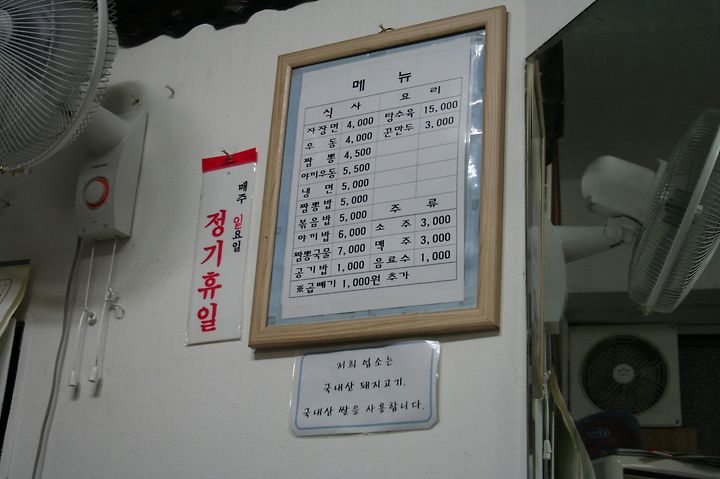 메 뉴
식 사 요 리
자장면 4,000 탕수육 15,000
우 동 4,000 군만두 3,000
짬 뽕 4,500
야끼우동 5,500
냉 면 5,000
짬뽕밥 5,000
볶음밥 5,000 주 류
야끼밥 6,000 소 주 3,000
짬뽕국물 7,000 맥 주 3,000
공기밥 1,000 음료수 1,000
※곱빼기 1,000원 추가
매주 일요일
정기휴일
저희 업소는
국내산 돼지고기,
국내산 쌀을 사용합니다.